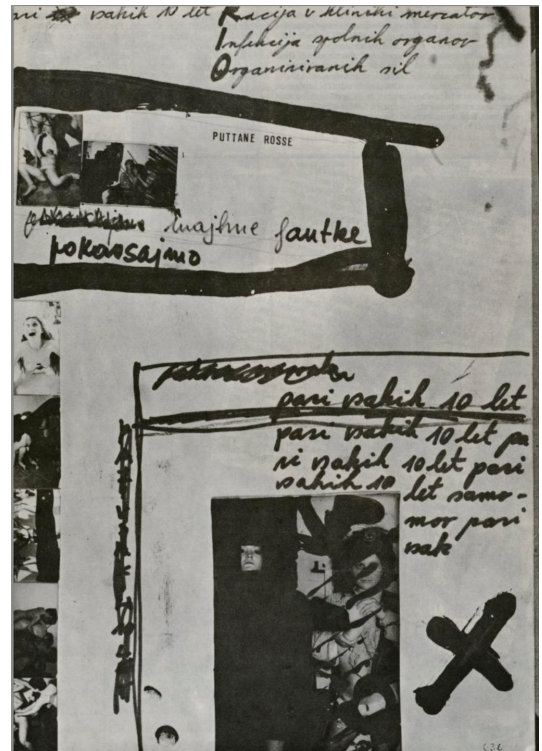 pari vsakih 10 let Racija v klinski mercator
Infekcija spolnih organov
Organiziranih sil
PUTTANE ROSSE
majhne fantke
pokovsajmo
pari vsakih 10 let
pari vsakih 10 let pa
ri vsakih 10 let pari
vsakih 10 let samo-
mor pari
vsak